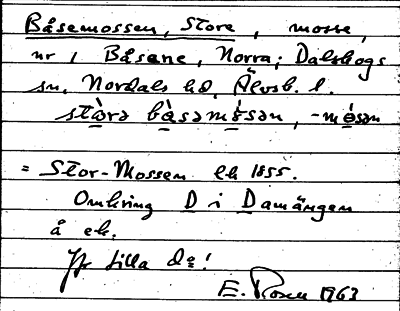 Båsemossen, Store, mosse,
nr 1 Båsane, Norra; Dalskogs
sn, Nordals hd, Älvsb. l.
stòrə bàsəmòsən, -mòsən
= Stor-Mossen ek 1855.
Omkring D i Damängen
å ek.
Jfr Lilla do!
E. Rosen 1963